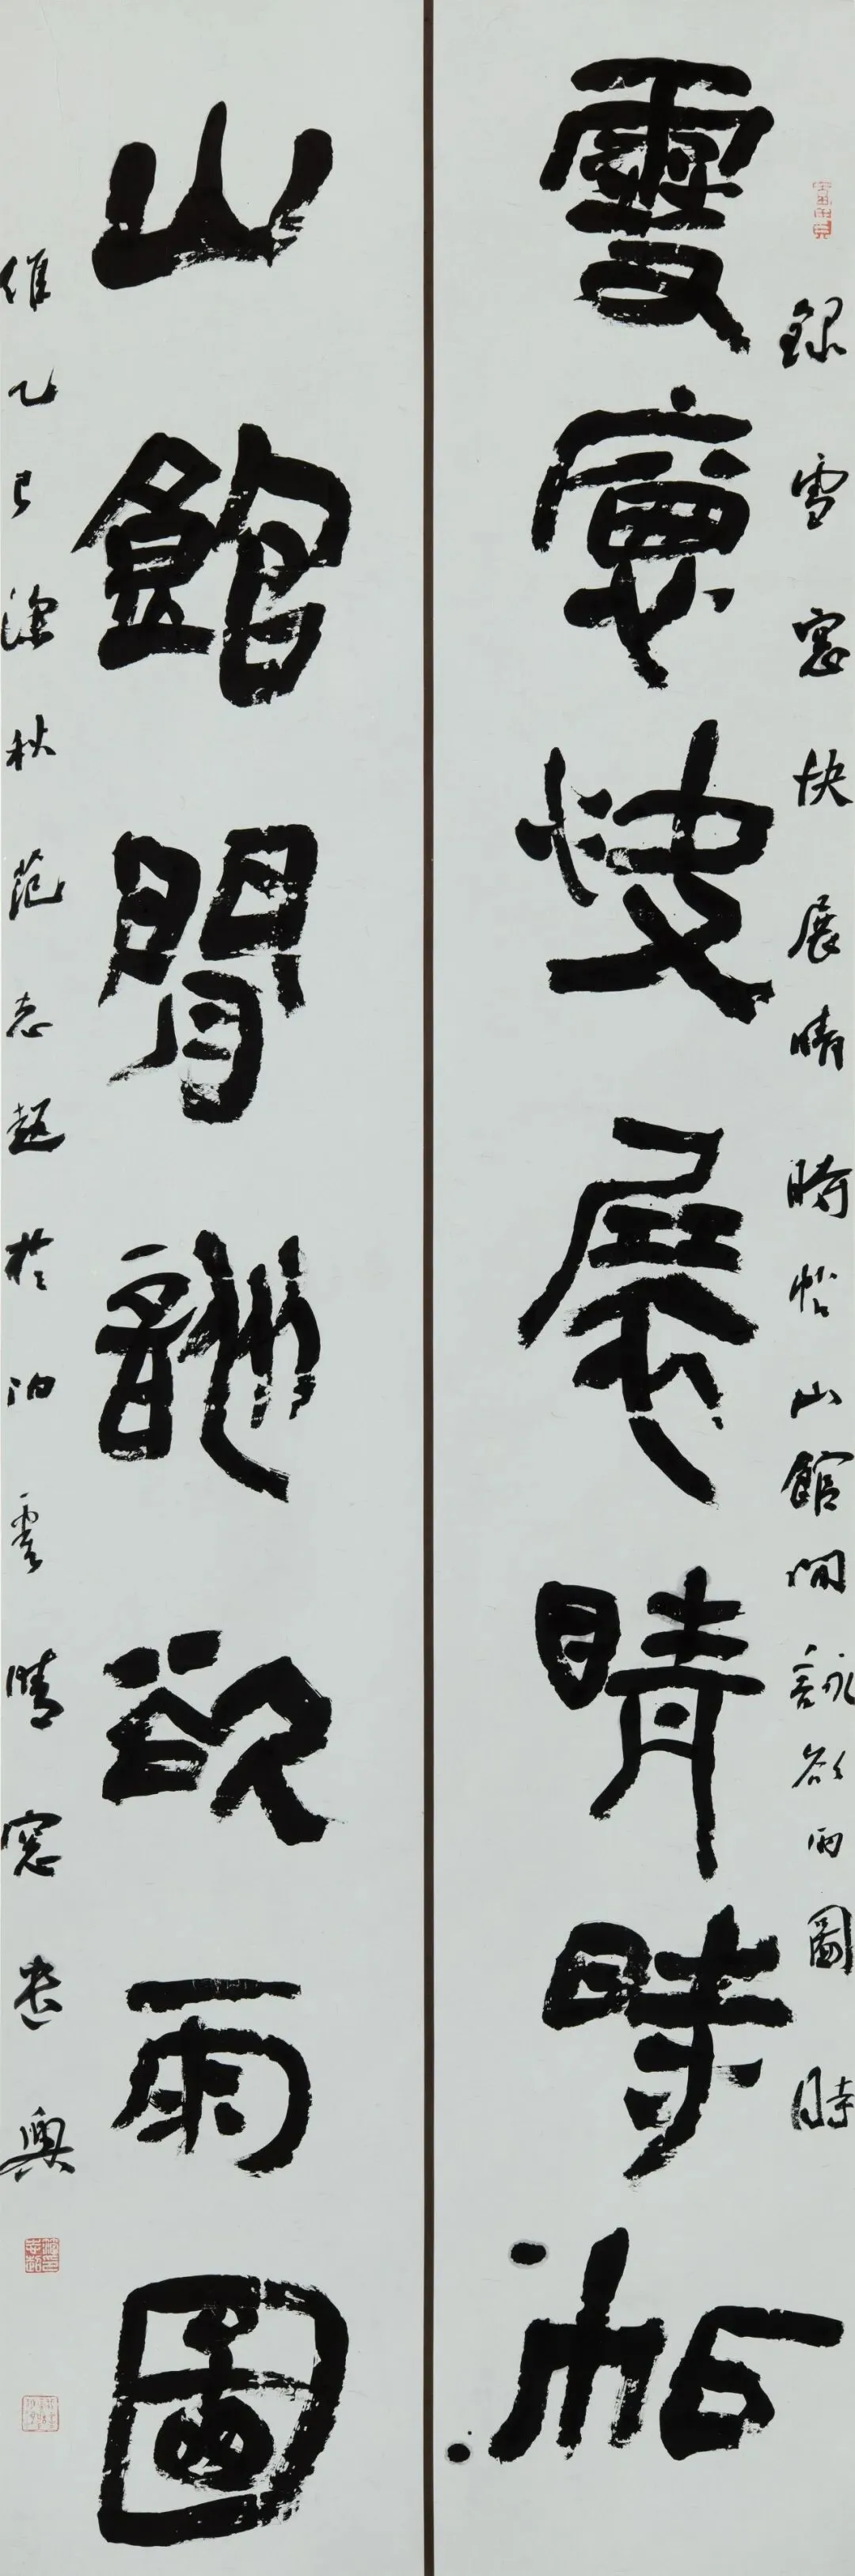 錄雪窓快展晴時帖山館閒詠欲雨圖時
雪窓快展晴時帖
山館閒詠欲雨圖
維乙巳深秋范志超於泊雲晴窓書興